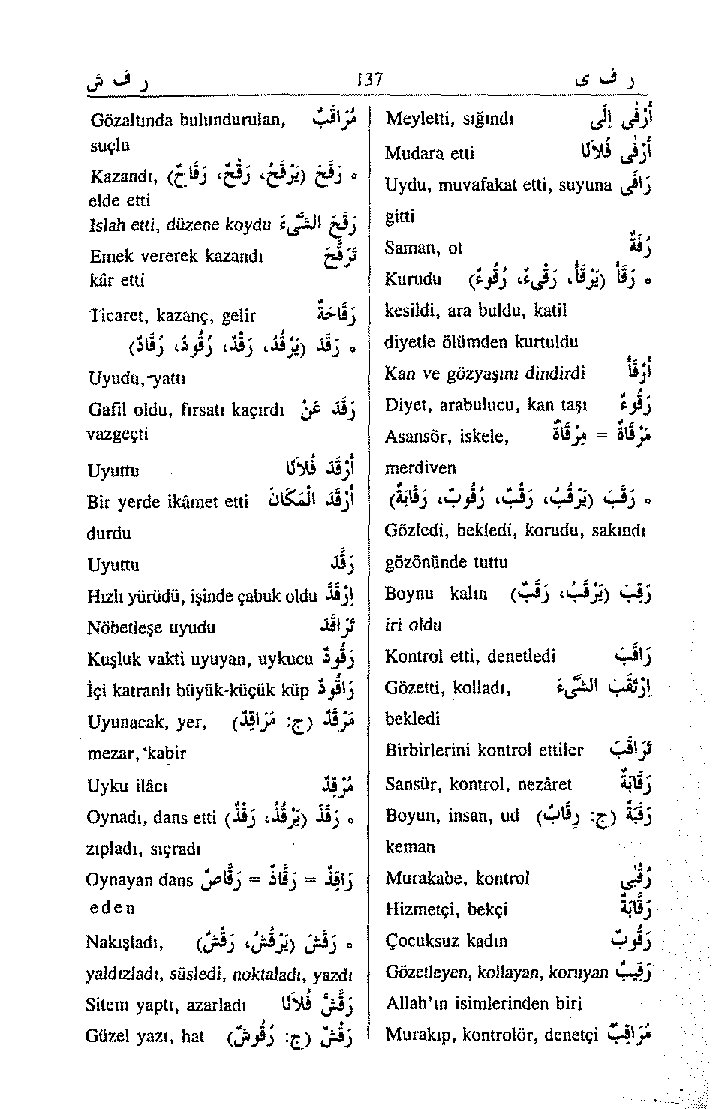 ر ق ش 137 ر ف ى
Meyletti, sığındı أَرْفَى إِلَى
Mudara etti أَرْفَى فُلَانًا
Uydu, muvafakat etti, suyuna رَافَى
gitti
Saman, ot رُفَةٌ
Kurudu رَقَأَ (يَرْقَأُ، رَقْءٌ، رُقُوءٌ) ○
kesildi, ara buldu, katil
diyetle ölümden kurtuldu
Kan ve gözyaşını dindirdi أَرْقَأَ
Diyet, arabulucu, kan taşı رَقُوءٌ
Asansör, iskele, مَرْقَاةٌ = مِرْقَاةٌ
merdiven
رَقَبَ (يَرْقُبُ، رَقْبٌ، رُقُوبٌ، رَقَابَةٌ) ○
Gözledi, bekledi, korudu, sakındı
gözönünde tuttu
Boynu kalın رَقِبَ (يَرْقَبُ، رَقَبٌ)
iri oldu
Kontrol etti, denetledi رَاقَبَ
Gözetti, kolladı, اِرْتَقَبَ الشَّيْءَ
bekledi
Birbirlerini kontrol ettiler تَرَاقَبَ
Sansür, kontrol, nezâret رَقَابَةٌ
Boyun, insan, ud رَقَبَةٌ (ج: رِقَابٌ)
keman
Murakabe, kontrol رُقْبَى
Hizmetçi, bekçi رَقَّابَةٌ
Çocuksuz kadın رَقُوبٌ
Gözetleyen, kollayan, koruyan رَقِيبٌ
Allah'ın isimlerinden biri
Murakıp, kontrolör, denetçi مُرَاقِبٌ
Gözaltında bulundurulan, مُرَاقَبٌ
suçlu
Kazandı, رَقَحَ (يَرْقَحُ، رَقْحٌ، رَقَاحٌ) ○
elde etti
Islah etti, düzene koydu رَقَّحَ الشَّيْءَ
Emek vererek kazandı تَرَقَّحَ
kâr etti
Ticaret, kazanç, gelir رَقَاحَةٌ
رَقَدَ (يَرْقُدُ، رَقْدٌ، رُقُودٌ، رُقَادٌ) ○
Uyudu, yattı
Gafil oldu, fırsatı kaçırdı رَقَدَ عَنْ
vazgeçti
Uyuttu أَرْقَدَ فُلَانًا
Bir yerde ikâmet etti أَرْقَدَ الْمَكَانَ
durdu
Uyuttu رَقَّدَ
Hızlı yürüdü, işinde çabuk oldu اِرْقَدَّ
Nöbetleşe uyudu تَرَاقَدَ
Kuşluk vakti uyuyan, uykucu رَقُودٌ
İçi katranlı büyük-küçük küp رَاقُودٌ
Uyunacak, yer, مَرْقَدٌ (ج: مَرَاقِدُ)
mezar, kabir
Uyku ilâcı مُرْقِدٌ
Oynadı, dans etti رَقَذَ (يَرْقُذُ، رَقْذٌ) ○
zıpladı, sıçradı
Oynayan dans رَاقِذٌ = رَقَّاذٌ = رَقَّاصٌ
eden
Nakışladı, رَقَشَ (يَرْقُشُ، رَقْشٌ) ○
yaldızladı, süsledi, noktaladı, yazdı
Sitem yaptı, azarladı رَقَّشَ فُلَانًا
Güzel yazı, hat رَقْشٌ (ج: رُقُوشٌ)